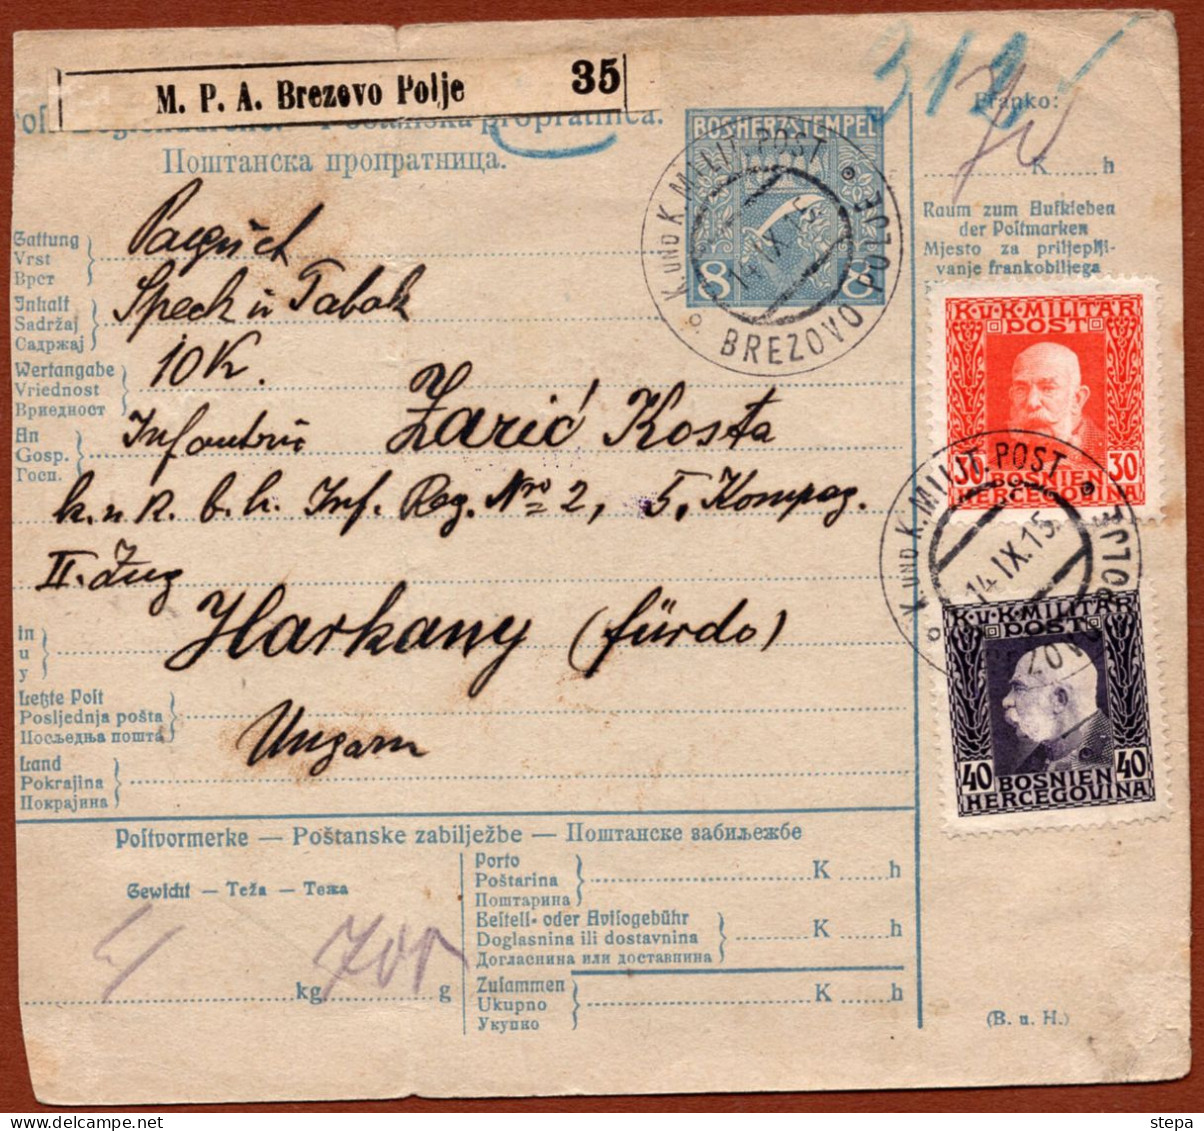 M. P. A. Brezovo Polje 35
Поштанска пропратница.
BOSHERZ STEMPEL
8 8
K. UND K. MILIT. POST
BREZOVO POLJE
14 IX 15
312
Franko:
K h
70
Raum zum Aufkleben
der Postmarken
Mjesto za priljeplji-
vanje frankobiljega
Gattung
Vrst
Врст
Paquet
Inhalt
Sadržaj
Садржај
Speck u Tabak
Wertangabe
Vriednost
Вриедност
10 K.
An
Gosp.
Госп.
Infantrie Zarić Kosta
k. u. k. b. h. Inf. Reg. Nro 2, 5. Kompag.
II. Zug
in
u
у
Harkany (fürdo)
Letzte Post
Posljednja pošta
Посљедња пошта
Ungarn
Land
Pokrajina
Покрајина
K. u. K. MILITÄR
POST
30 30
BOSNIEN
HERCEGOVINA
K. UND K. MILIT. POST
BREZOVO POLJE
14 IX. 15
K. u. K. MILITÄR
POST
40 40
BOSNIEN
HERCEGOVINA
Postvormerke — Poštanske zabilježbe — Поштанске забиљежбе
Gewicht — Teža — Тежа
4 700
kg g
Porto
Poštarina
Поштарина
K h
Bestell- oder Avisogebühr
Doglasnina ili dostavnina
Догласнина или доставнина
K h
Zusammen
Ukupno
Укупно
K h
(B. u. H.)
stepa